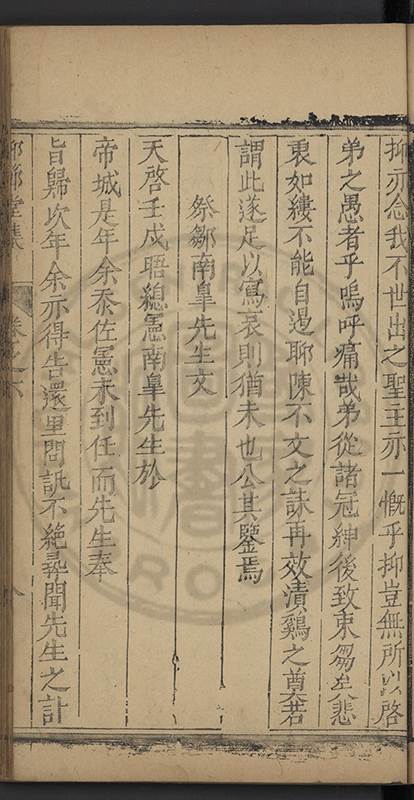 抑亦念我不世出之聖主亦一慨乎抑豈無所以啓
弟之愚者乎嗚呼痛哉弟從諸冠紳後致束芻矣悲
衷如縷不能自遏聊陳不文之誄再效漬鷄之奠若
謂此遂足以寫哀則猶未也公其鑒焉
祭鄒南臯先生文
天啓壬戌晤總憲南臯先生於
帝城是年余忝佐憲未到任而先生奉
旨歸次年余亦得告還里問訊不絶尋聞先生之訃
堂集 卷之六 八